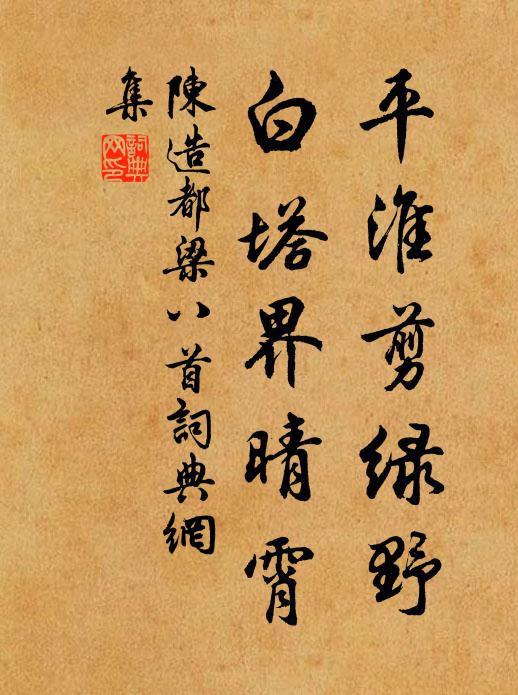 平淮剪绿野
白塔界晴霄
陳造都梁八首詞典網
集
詞典网印